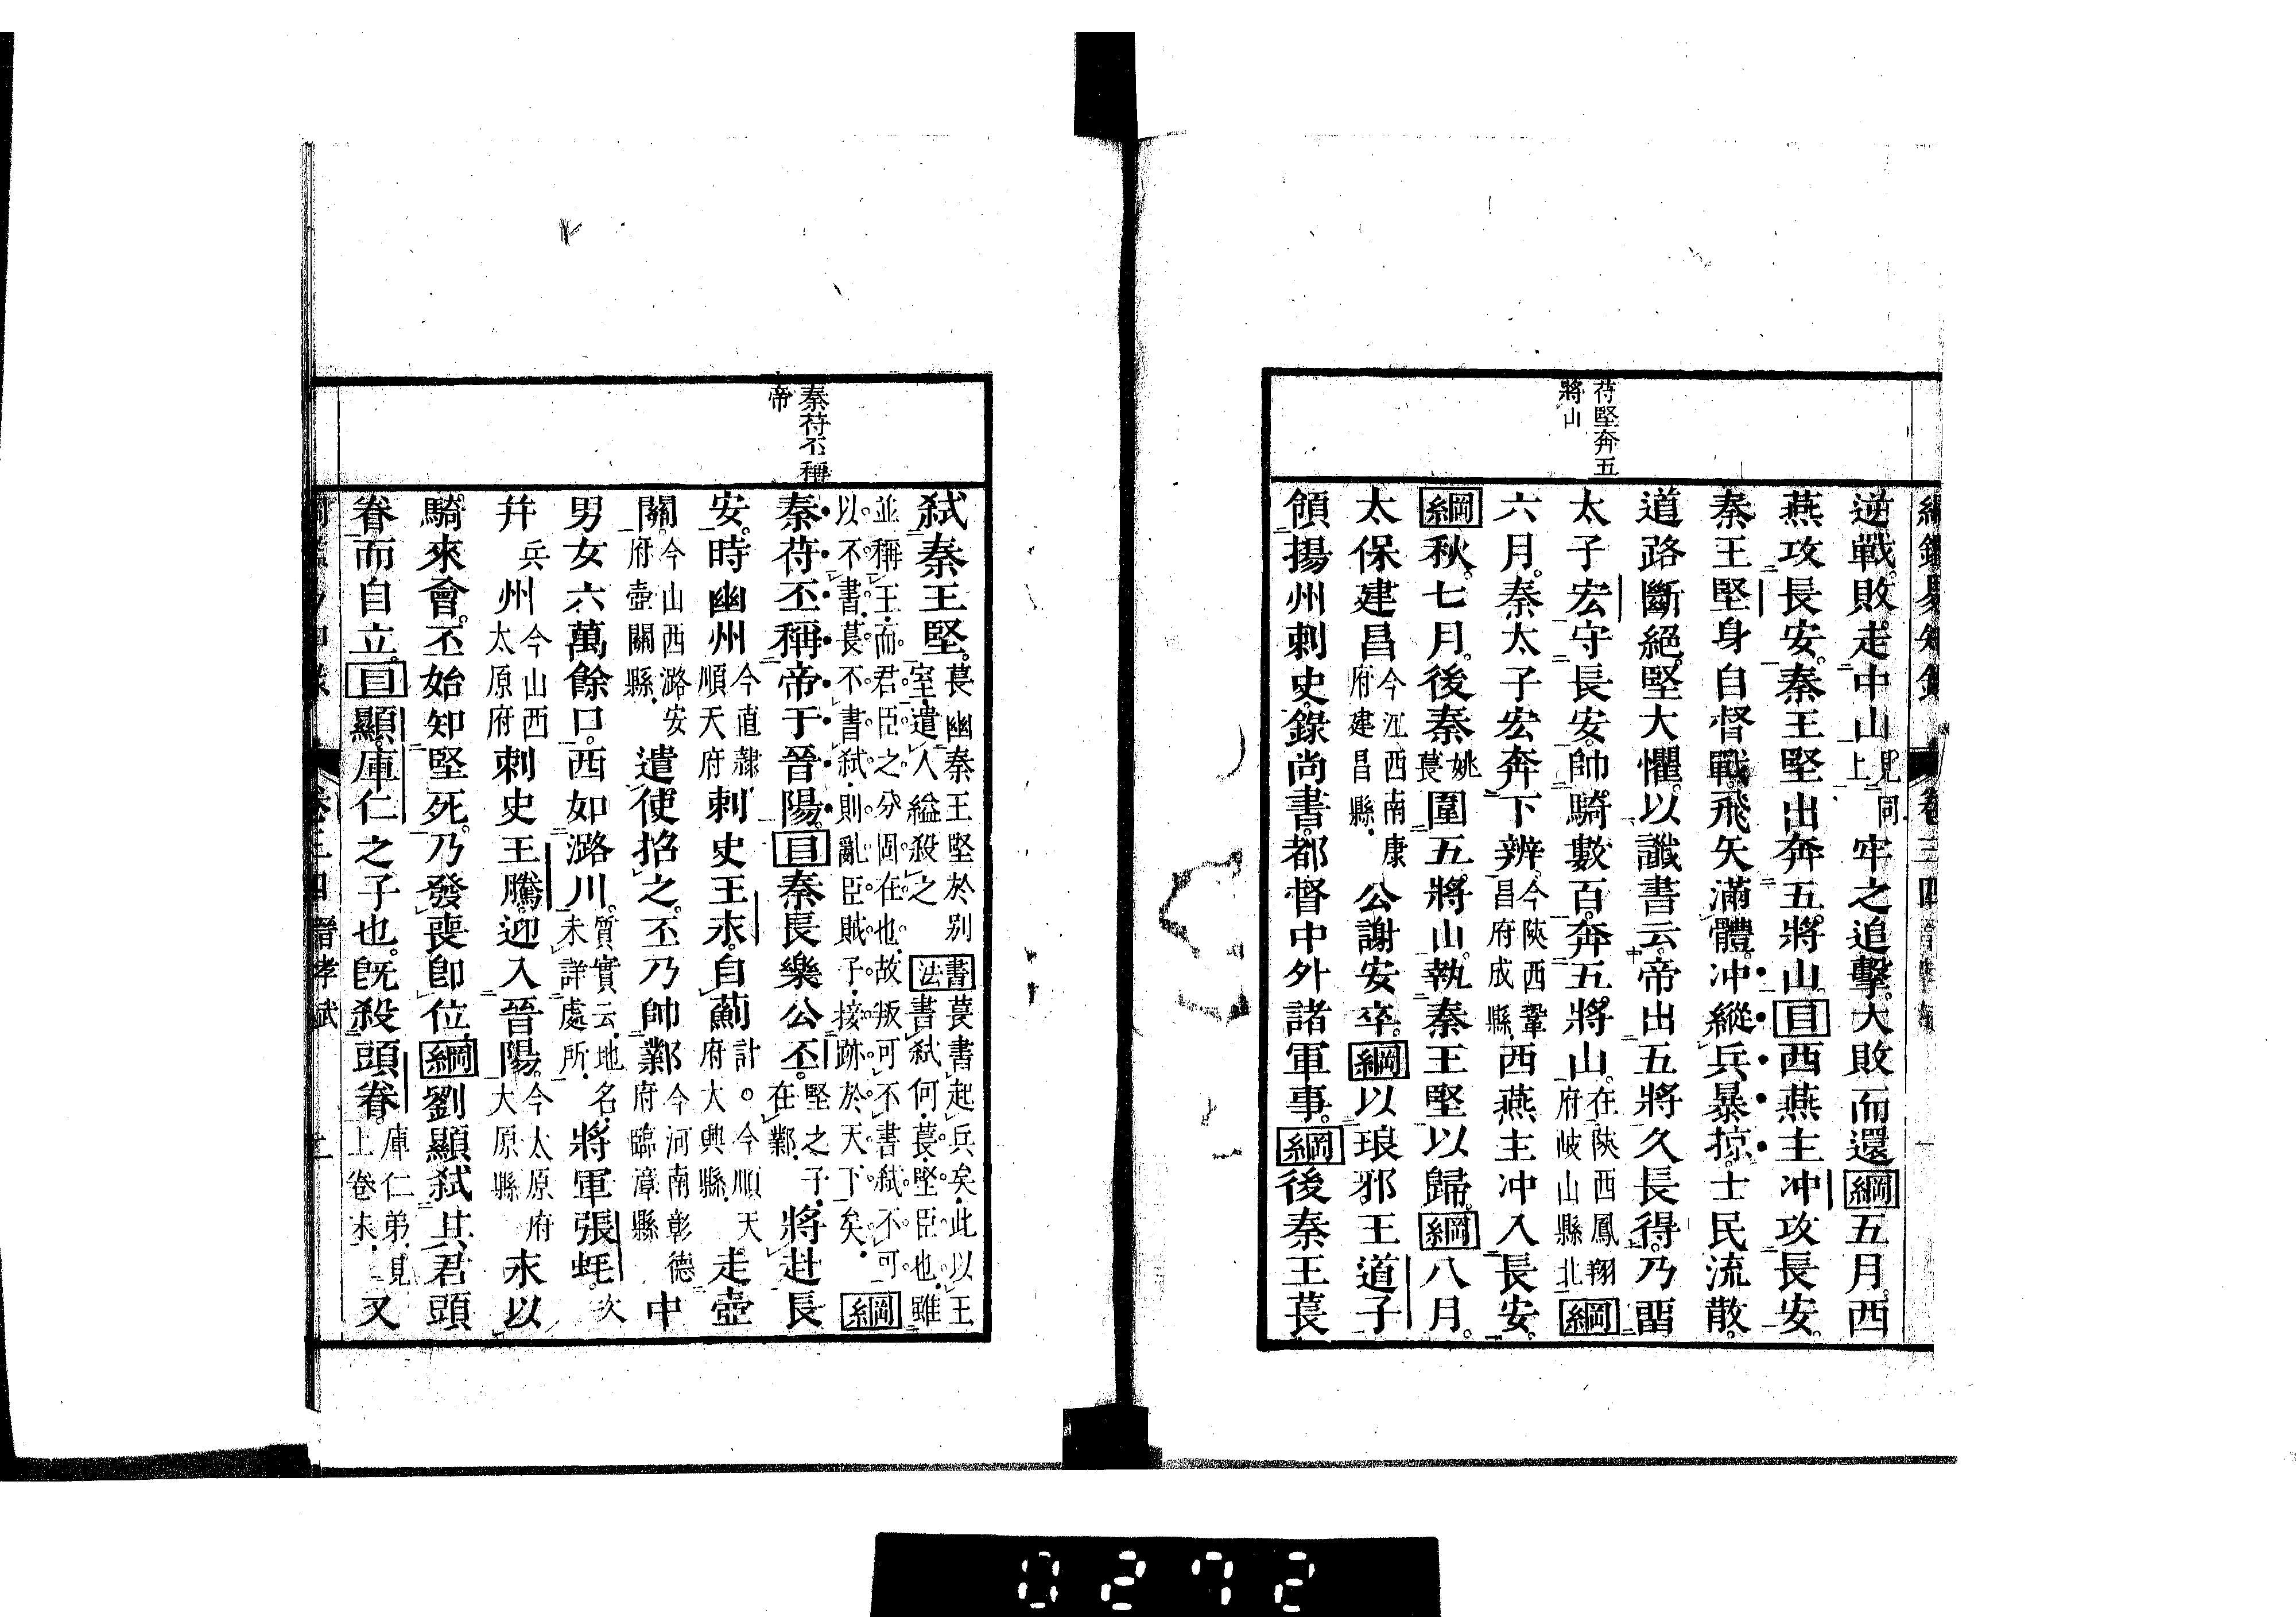 綱鑑易知錄 卷三四
苻堅奔五
將山
逆戰。敗。走中山。見同上牢之追擊。大敗而還綱五月。西
燕攻長安。秦王堅出奔五將山。目西燕主冲攻長安。
秦王堅身自督戰。飛矢滿體。冲縱兵暴掠。士民流散。
道路斷絕。堅大懼。以讖書云。帝出五將久長得。乃留
太子宏守長安。帥騎數百。奔五將山。在陝西鳳翔府岐山縣北綱
六月。秦太子宏奔下辨。今陝西鞏昌府成縣西燕主冲入長安。
綱秋。七月。後秦姚萇圍五將山。執秦王堅以歸。綱八月。
太保建昌今江西南康府建昌縣公謝安卒。綱以琅邪王道子
領揚州刺史。錄尚書。都督中外諸軍事。綱後秦王萇
秦苻丕稱
帝
弑秦王堅。萇幽秦王堅於別室。遣人縊殺之書法萇書起兵矣。此以王書弑何。萇堅臣也。雖
並稱王。而君臣之分固在也。故叛可不書。弑不可以不書。萇不書弑。則亂臣賊子。接跡於天下矣。綱
秦苻丕稱帝于晉陽。目秦長樂公丕。堅之子。在鄴將赴長
安。時幽州今直隸順天府刺史王永。自薊計。今順天府大興縣走壺
關。今山西潞安府壺關縣遣使招之。丕乃帥鄴今河南彰德府臨漳縣中
男女六萬餘口。西如潞川。質實云。地名。未詳處所。將軍張蚝。次
并兵州今山西太原府刺史王騰。迎入晉陽。今太原府大原縣永以
騎來會。丕始知堅死。乃發喪卽位。綱劉顯弑其君頭
眷而自立。目顯。庫仁之子也。旣殺頭眷。庫仁弟。見上卷末。又
卷三四 晉孝武 二
0272